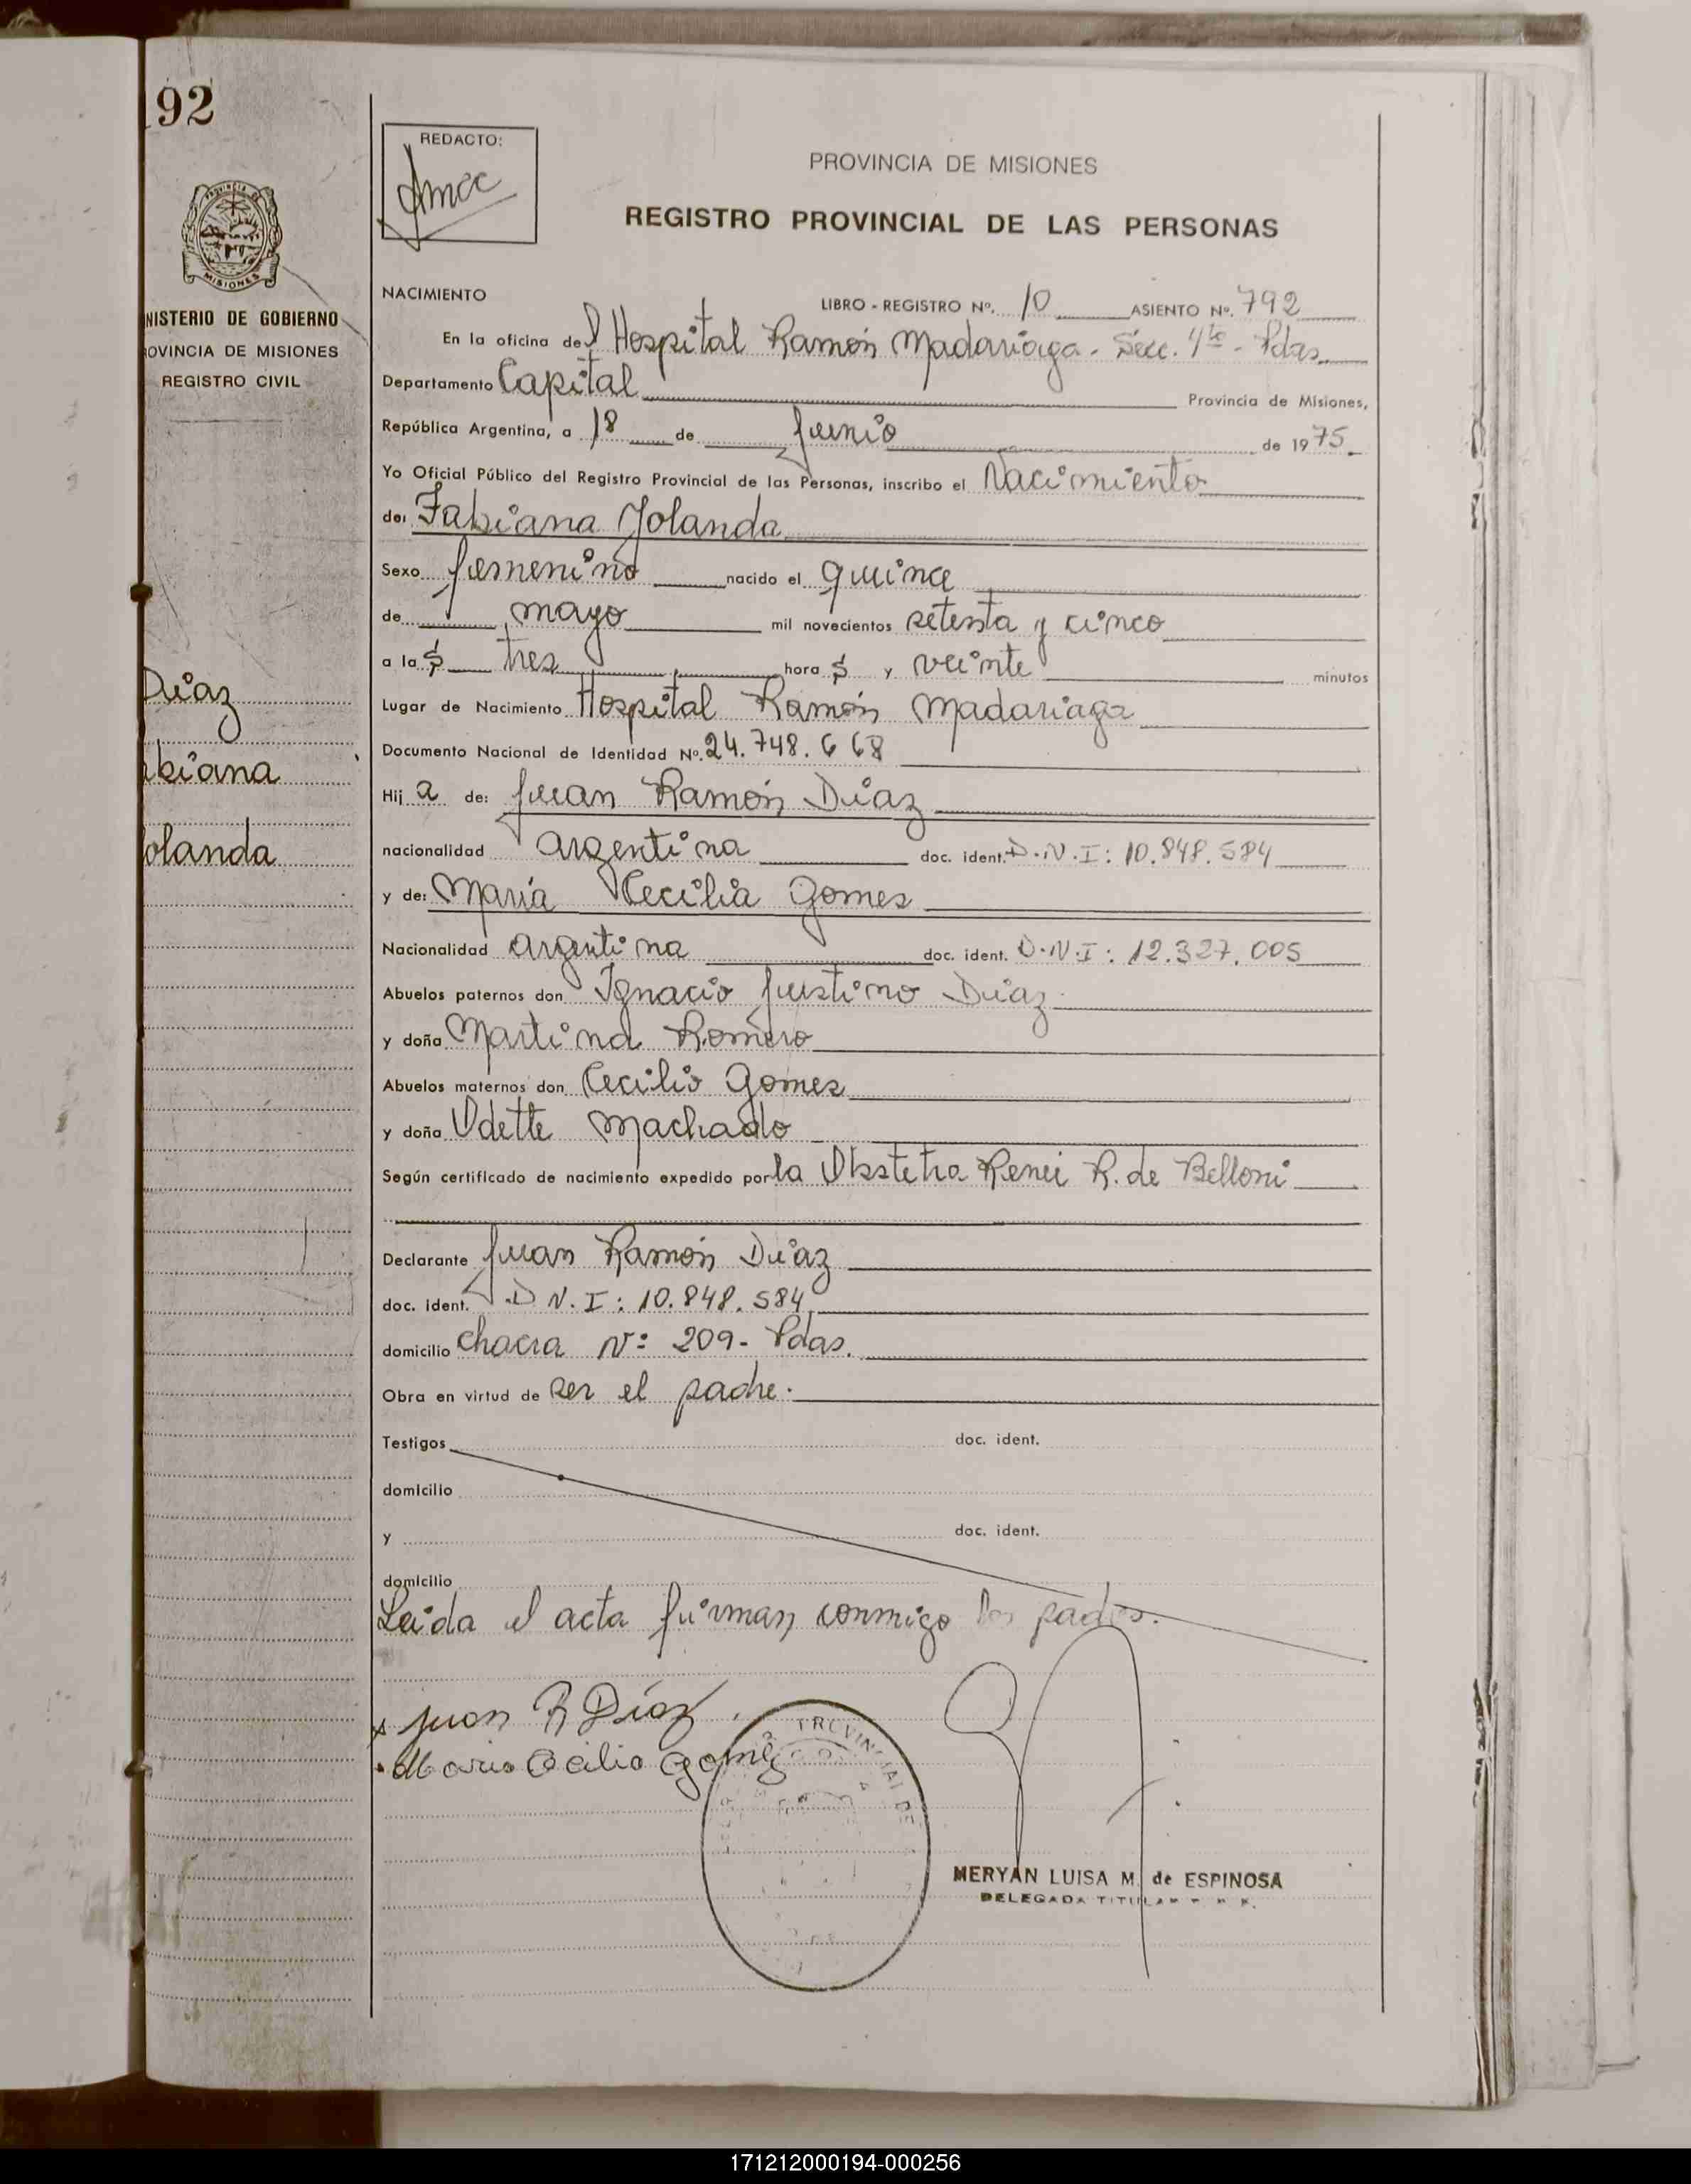 92
REDACTO:
PROVINCIA DE MISIONES
REGISTRO PROVINCIAL DE LAS PERSONAS
MISIONES
NISTERIO DE GOBIERNO
OVINCIA DE MISIONES
REGISTRO CIVIL
NACIMIENTO
LIBRO - REGISTRO Nº. 10 ASIENTO Nº. 792
En la oficina del Hospital Ramón Madariaga - Secc. 4ta - Pdas.
Departamento Capital Provincia de Misiones,
República Argentina, a 18 de junio de 1975
Yo Oficial Público del Registro Provincial de las Personas, inscribo el Nacimiento
de: Fabiana Yolanda
Sexo femenino nacido el quince
de mayo mil novecientos setenta y cinco
a las tres horas y veinte minutos
Lugar de Nacimiento Hospital Ramón Madariaga
Documento Nacional de Identidad Nº. 24.748.668
Díaz
abiana
olanda
Hij a de: Juan Ramón Díaz
nacionalidad argentina doc. ident. D.N.I: 10.848.584
y de: María Cecilia Gomes
Nacionalidad argentina doc. ident. D.N.I: 12.327.005
Abuelos paternos don Ignacio Justino Díaz
y doña Martina Romero
Abuelos maternos don Cecilio Gomes
y doña Odette Machado
Según certificado de nacimiento expedido por la Obstetra Renei R. de Belloni
Declarante Juan Ramón Díaz
doc. ident. D.N.I: 10.848.584
domicilio Chacra Nº 209 - Pdas.
Obra en virtud de ser el padre.
Testigos doc. ident.
domicilio
y doc. ident.
domicilio
Leida el acta firman conmigo los padres.
x Juan R Díaz
Maria Cecilia Gomez
PROVINCIAL DE
MERYAN LUISA M. de ESPINOSA
DELEGADA TITULAR
171212000194-000256